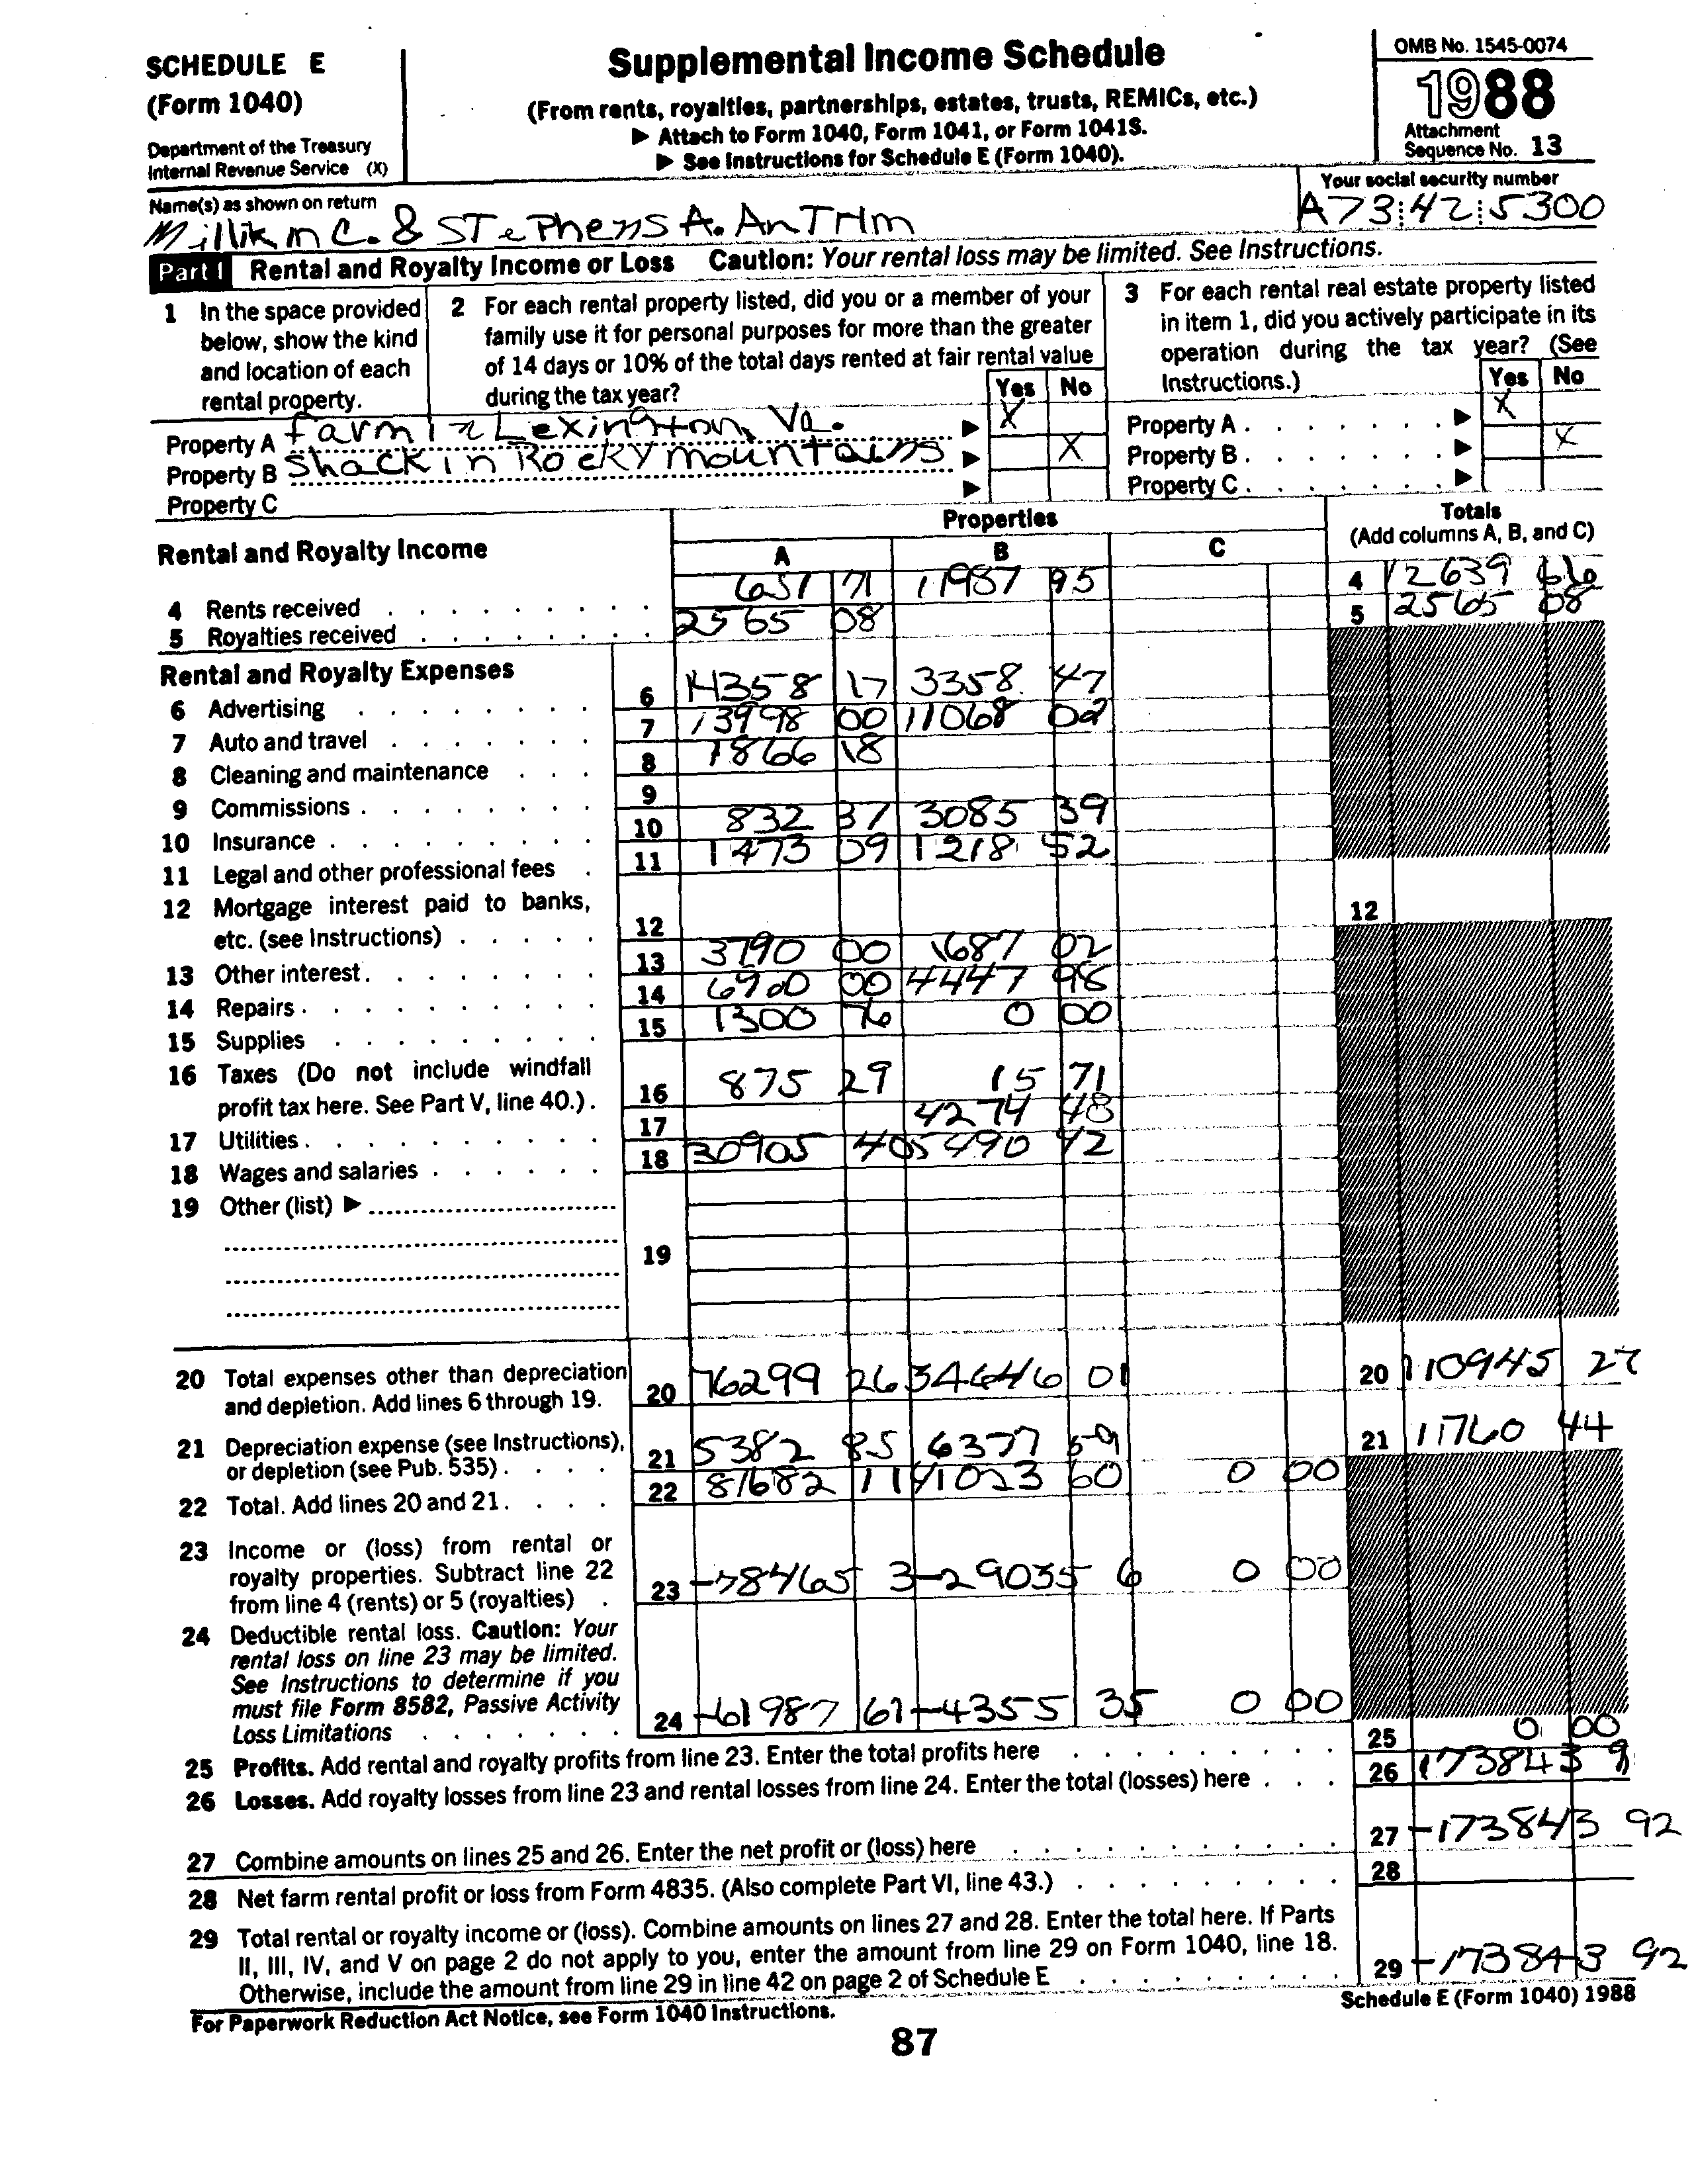 SCHEDULE E
(Form 1040)
Department of the Treasury
Internal Revenue Service (X)
Supplemental Income Schedule
(From rents, royalties, partnerships, estates, trusts, REMICs, etc.)
▶ Attach to Form 1040, Form 1041, or Form 1041S.
▶ See Instructions for Schedule E (Form 1040).
OMB No. 1545-0074
1988
Attachment
Sequence No. 13
Name(s) as shown on return
Your social security number
C. & STePhens A. AnTrim
A73:42:5300
Part I Rental and Royalty Income or Loss Caution: Your rental loss may be limited. See Instructions.
1 In the space provided below, show the kind and location of each rental property.
2 For each rental property listed, did you or a member of your family use it for personal purposes for more than the greater of 14 days or 10% of the total days rented at fair rental value during the tax year?
Yes No
3 For each rental real estate property listed in item 1, did you actively participate in its operation during the tax year? (See Instructions.)
Yes No
Property A farm in Lexington, Va. ▶ X
Property A . . . . . . . ▶ X
Property B Shack in Rocky mountains ▶ X
Property B . . . . . . . ▶ X
Property C ▶
Property C . . . . . . . ▶
Rental and Royalty Income
Properties
A B C
Totals
(Add columns A, B, and C)
4 Rents received 651 71 11987 95 4 12639 66
5 Royalties received 2565 08 5 2565 08
Rental and Royalty Expenses
6 Advertising 6 14358 17 3358 47
7 Auto and travel 7 13998 00 11068 02
8 Cleaning and maintenance 8 1866 18
9 Commissions 9
10 Insurance 10 832 37 3085 39
11 Legal and other professional fees 11 1473 09 1218 52
12 Mortgage interest paid to banks, etc. (see Instructions) 12 12
13 Other interest 13 3790 00 1687 02
14 Repairs 14 6900 00 4447 98
15 Supplies 15 1300 76 0 00
16 Taxes (Do not include windfall profit tax here. See Part V, line 40.) 16 875 29 15 71
17 Utilities 17 4274 48
18 Wages and salaries 18 30905 40 5490 42
19 Other (list) ▶ 19
20 Total expenses other than depreciation and depletion. Add lines 6 through 19. 20 76299 26 34646 01 20 110945 27
21 Depreciation expense (see Instructions), or depletion (see Pub. 535) 21 5382 85 6377 59 21 11760 44
22 Total. Add lines 20 and 21 22 81682 11 41023 60 0 00
23 Income or (loss) from rental or royalty properties. Subtract line 22 from line 4 (rents) or 5 (royalties) 23 -78465 3 -29035 6 0 00
24 Deductible rental loss. Caution: Your rental loss on line 23 may be limited. See Instructions to determine if you must file Form 8582, Passive Activity Loss Limitations 24 -61987 61 -4355 35 0 00
25 Profits. Add rental and royalty profits from line 23. Enter the total profits here 25 0 00
26 Losses. Add royalty losses from line 23 and rental losses from line 24. Enter the total (losses) here 26 173843 9
27 Combine amounts on lines 25 and 26. Enter the net profit or (loss) here 27 -173843 92
28 Net farm rental profit or loss from Form 4835. (Also complete Part VI, line 43.) 28
29 Total rental or royalty income or (loss). Combine amounts on lines 27 and 28. Enter the total here. If Parts II, III, IV, and V on page 2 do not apply to you, enter the amount from line 29 on Form 1040, line 18. Otherwise, include the amount from line 29 in line 42 on page 2 of Schedule E 29 -173843 92
For Paperwork Reduction Act Notice, see Form 1040 Instructions.
Schedule E (Form 1040) 1988
87